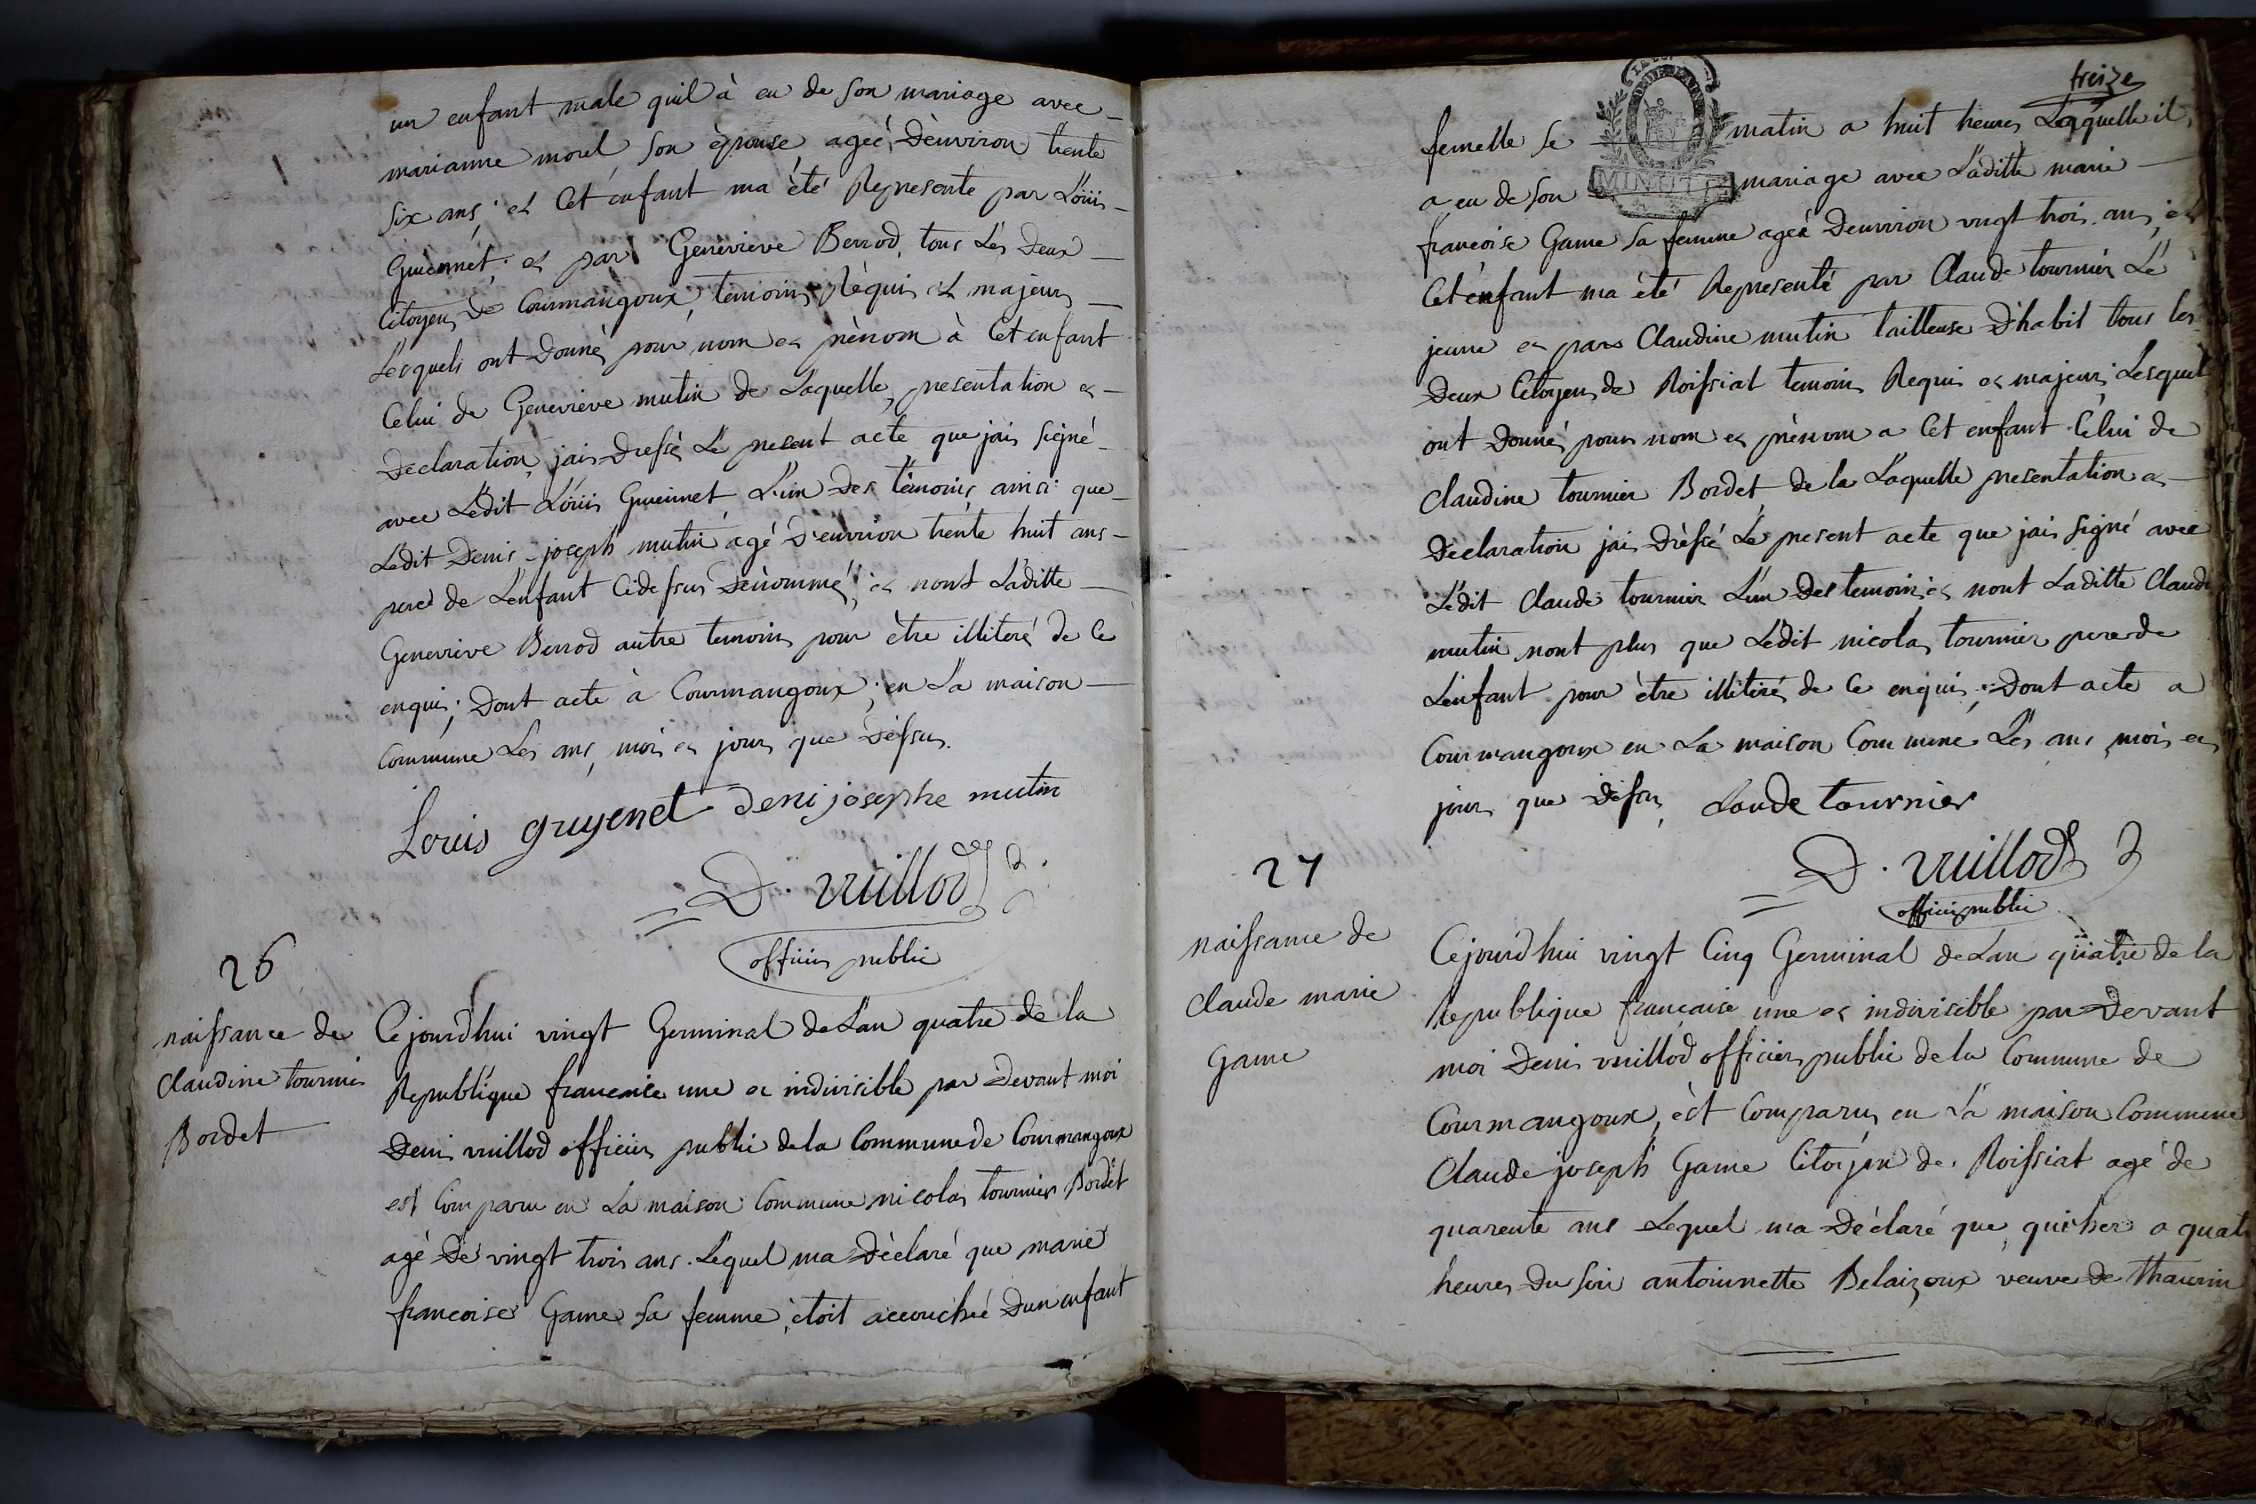 un enfant male quil à eu de son mariage avec
marianne morel son épouse ageé Dènviron trente
six ans; et Cet enfant ma èté Represente par Loüis
Guiennét; et par Genevieve Berrod, tous Les Deux
Citoyens De Courmangoux, temoins Rèquis et majeurs
Lesquels ont Donnés pour nom et prènom à Cet enfant
Celui de Genevieve mutin de Laquelle, presentation et
Declaration, jais Dressé Le present acte que jais signé
avec Ledit Loüis Guiennet L'un Des témoins ainsi que
Ledit Denis-joseph mutin agé D'environ trente huit ans
pere de L'enfant Cidessus Dénommé; et nont Laditte
Genevieve Berrod autre temoins pour ètre illiteré de Ce
enquis; Dont acte à Courmangoux; en La maison
Commune Les ans, mois et jours que Dessus.
Louis gruyenet deni josephe mutin
D. vuillod
officier public
26
naissance de
Claudine tournier
Bordet
Cejourdhui vingt Germinal de Lan quatre de la
Republique francaise une et indivisible par Devant moi
Denis vuillod officier public de la Commune de Courmangoux
est Comparu en La maison Commune nicolas tournier Bordet
agé De vingt trois ans. Lequel ma Dèclaré que marie
francoise Game sa femme, ètoit accouchée Dun enfant
treize
femelle se matin a huit heures Laquelle il
a eu de son mariage avec Laditte marie
MINUTE
françoise Game sa femme ageé Denviron vingt trois ans; et
Cet enfant ma èté Representé par Claude tournier Le
jeune et par Claudine mutin tailleuse D'habit tous les
Deux Citoyens de Roissiat temoins Requis et majeurs Lesquels
ont Donnés pour nom et prènom a Cet enfant Celui de
Claudine tournier Bordet de la Laquelle presentation et
Dèclaration jais Drèssé Le present acte que jais signé avec
Lédit Claude tournier L'un Des temoins; et nont Laditte Claude
mutin nont plus que Lédit nicolas tournier pere de
L'enfant pour ètre illiteré de Ce enquis; Dont acte a
Courmangoux en La maison Commune Les ans mois et
jours que Dessus, Laude tournier
D. vuillod
officier public
27
naissance de
Claude marie
Game
Cejourd'hui vingt Cinq Germinal de Lan quatre de la
Republique francaise une et indivisible par Devant
moi Denis vuillod officier public de la Commune de
Courmangoux, èst Comparus en La maison Commune
Claude joseph Game Citoyen de Roissiat agé de
quarente ans Lequel ma Dèclaré que, quiher a quatre
heures Du soir antoinnette Belaizoux veuve de thauvin